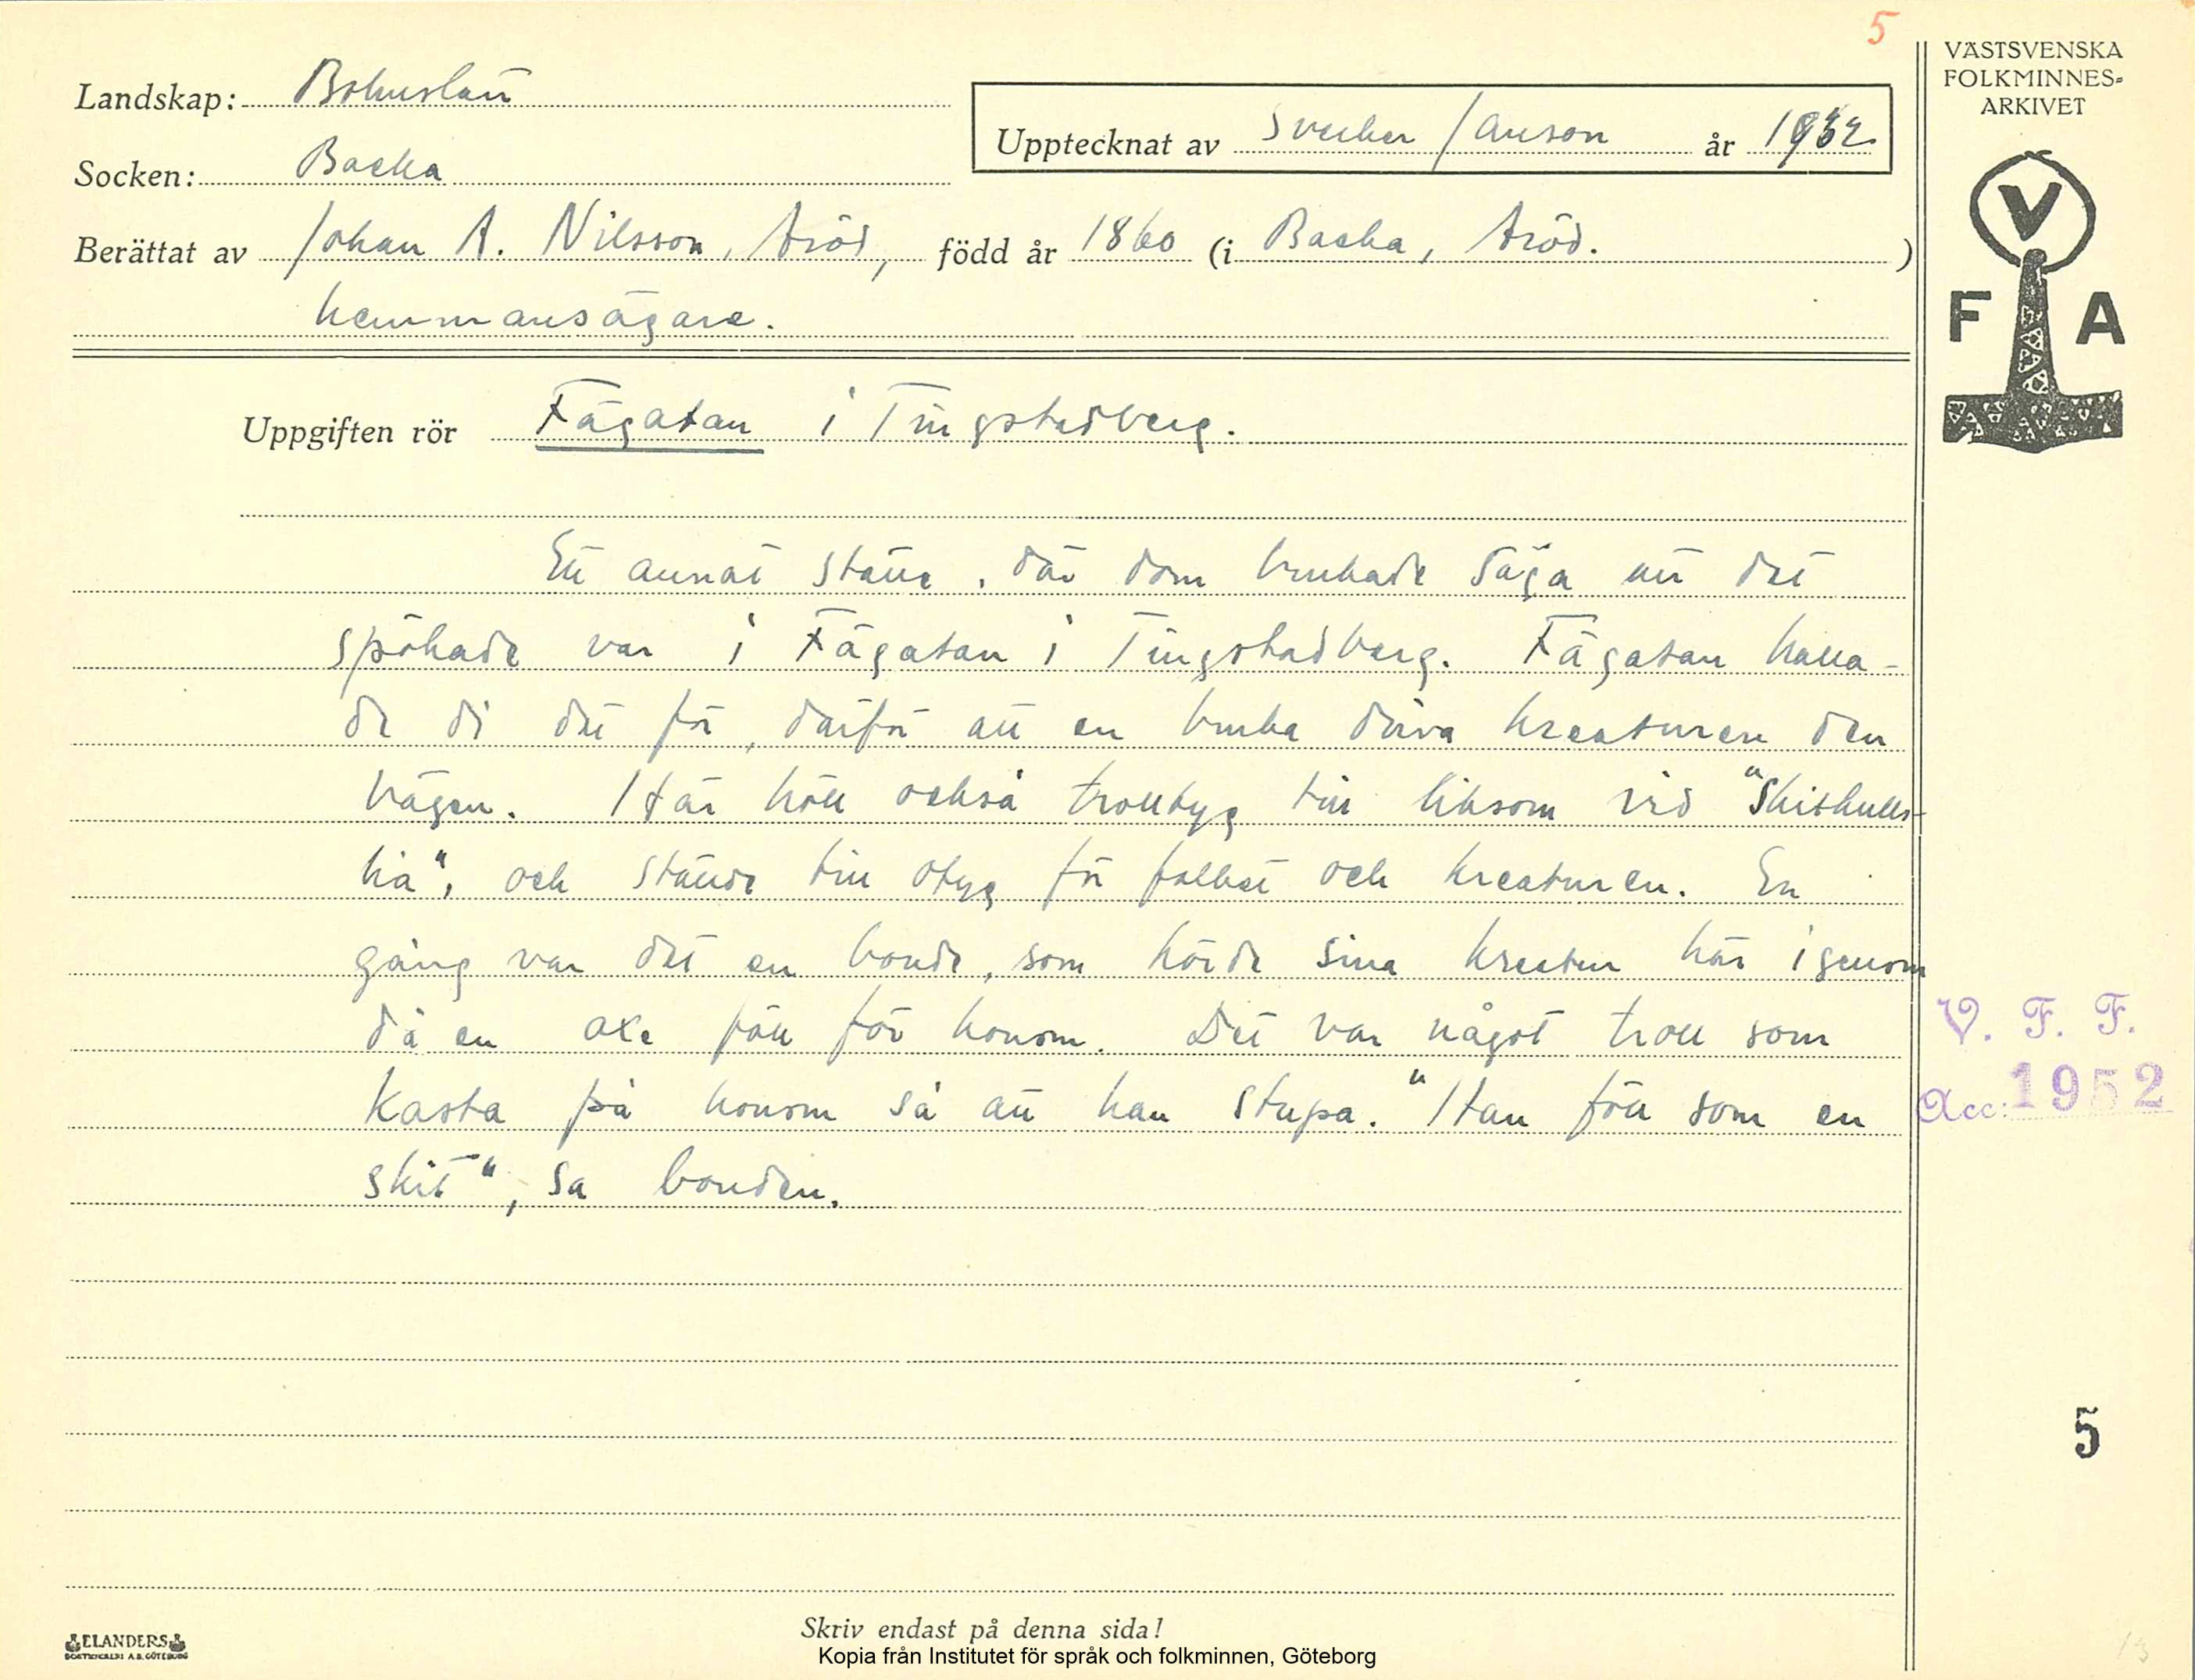 5
VÄSTSVENSKA
FOLKMINNES-
ARKIVET
V
F A
Landskap: Bohuslän
Upptecknat av Sverker Janson år 1932
Socken: Backa
Berättat av Johan A. Nilsson, Aröd, född år 1860 (i Backa, Aröd. )
hemmansägare.
Uppgiften rör Fägatan i Tingstadberg.
Ett annat ställe, där dom brukade säga att det
spökade var i Fägatan i Tingstadberg. Fägatan kalla-
de di det för, därför att en bruka driva kreaturen den
vägen. Här höll också trolltyg till liksom vid "Skitkulls-
lia", och ställde till otyg för folket och kreaturen. En
gång var det en bonde, som körde sina kreatur här igenom
då en oxe föll för honom. Det var något troll som
kasta på honom så att han stupa. "Han föll som en
skit", sa bonden.
V. F. F.
Acc: 1952
5
ELANDERS
BOKTRYCKERI A.B. GÖTEBORG
Skriv endast på denna sida!
Kopia från Institutet för språk och folkminnen, Göteborg